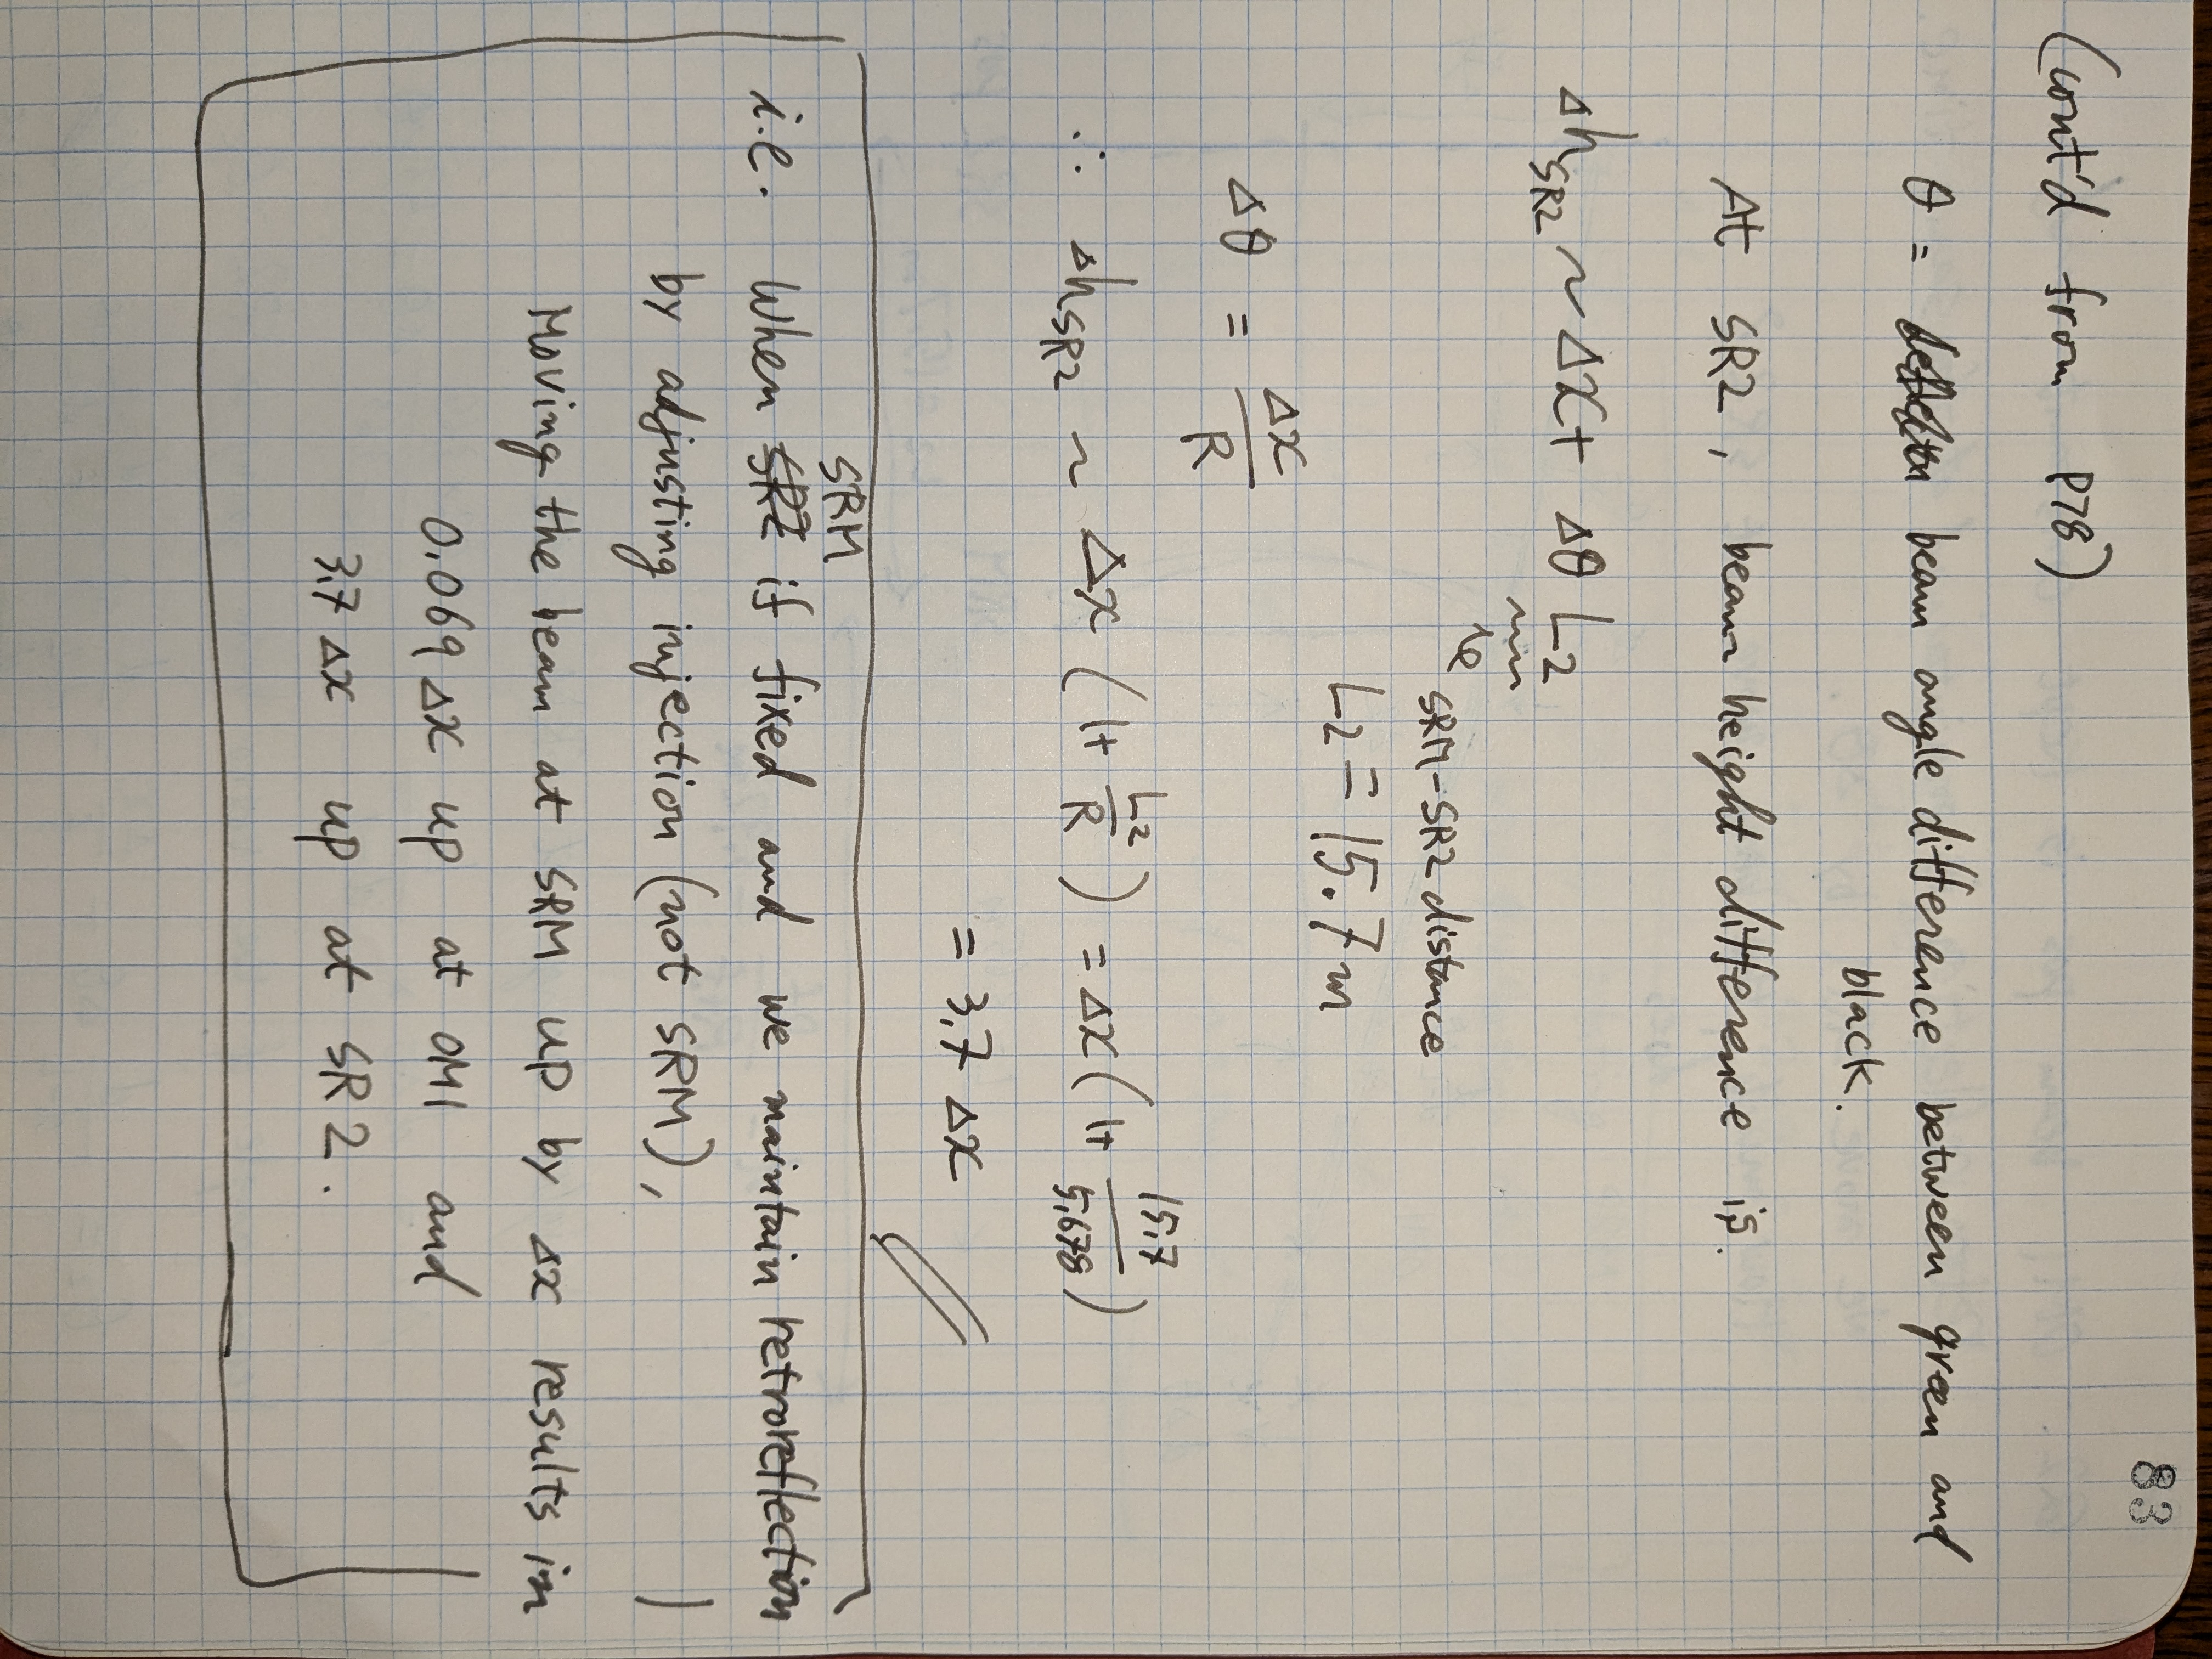 83
(cont'd from P78)
θ = beam angle difference between green and
black.
At SR2, beam height difference is.
Δh_SR2 ~ Δx + Δθ L2
SRM-SR2 distance
L2 = 15.7 m
Δθ = Δx / R
∴ Δh_SR2 ~ Δx (1 + L2 / R) = Δx (1 + 15.7 / 5.678)
= 3.7 Δx
SRM
i.e. When SR2 if fixed and we maintain retroreflection
by adjusting injection (not SRM),
Moving the beam at SRM up by Δx results in
0.069 Δx up at OM1 and
3.7 Δx up at SR2.